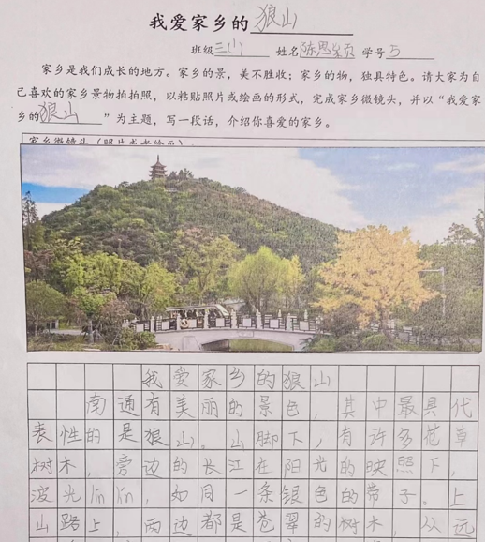 我爱家乡的狼山
班级三(1) 姓名陈思 学号5
家乡是我们成长的地方。家乡的景，美不胜收；家乡的物，独具特色。请大家为自
己喜欢的家乡景物拍拍照，以粘贴照片或绘画的形式，完成家乡微镜头，并以“我爱家
乡的狼山”为主题，写一段话，介绍你喜爱的家乡。
家乡微镜头（照片或者绘画）：
我爱家乡的狼山
南通有美丽的景色，其中最具代
表性的是狼山。山脚下，有许多花草
树木，旁边的长江在阳光的映照下，
波光lín lín，如同一条银色的带子。上
山路上，两边都是苍翠的树木，从远